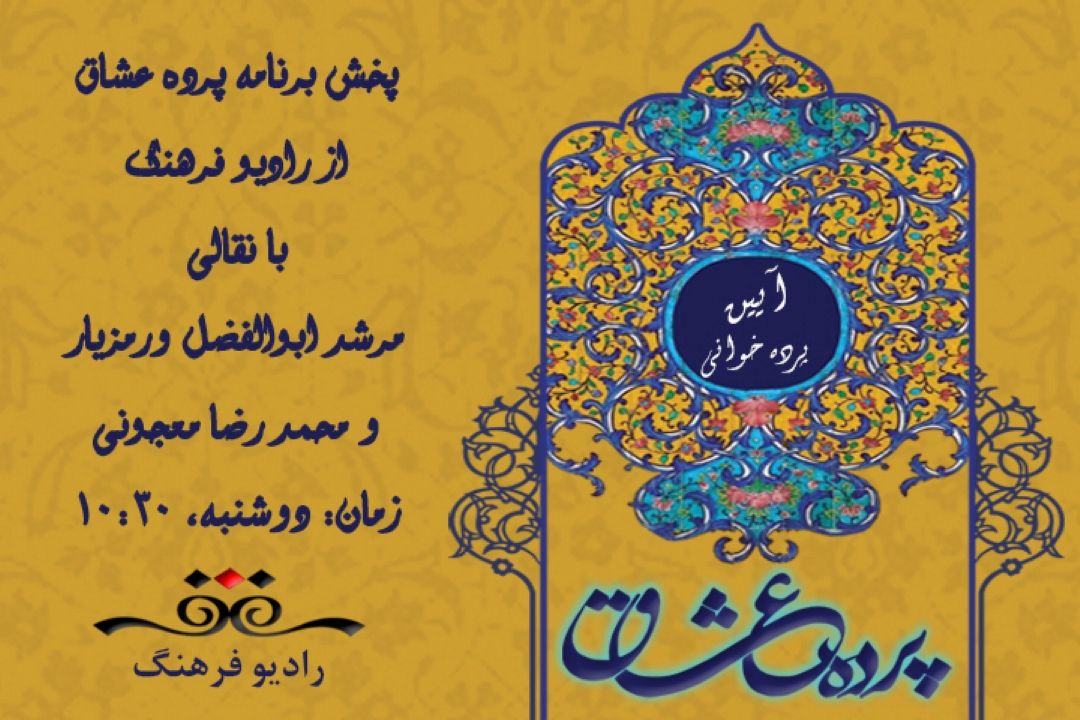 پخش برنامه پرده عشاق
از رادیو فرهنگ
با نقالی
مرشد ابوالفضل ورمزیار
و محمدرضا معجونی
زمان: دوشنبه، ۱۰:۳۰
رادیو فرهنگ
آیین
پرده خوانی
پرده عشاق